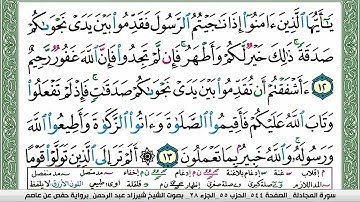 يَـٰٓأَيُّهَا ٱلَّذِينَ ءَامَنُوٓا۟ إِذَا نَـٰجَيْتُمُ ٱلرَّسُولَ فَقَدِّمُوا۟ بَيْنَ يَدَىْ نَجْوَىٰكُمْ
صَدَقَةً ۚ ذَٰلِكَ خَيْرٌ لَّكُمْ وَأَطْهَرُ ۚ فَإِن لَّمْ تَجِدُوا۟ فَإِنَّ ٱللَّهَ غَفُورٌ رَّحِيمٌ
١٢ ءَأَشْفَقْتُمْ أَن تُقَدِّمُوا۟ بَيْنَ يَدَىْ نَجْوَىٰكُمْ صَدَقَـٰتٍ ۚ فَإِذْ لَمْ تَفْعَلُوا۟
وَتَابَ ٱللَّهُ عَلَيْكُمْ فَأَقِيمُوا۟ ٱلصَّلَوٰةَ وَءَاتُوا۟ ٱلزَّكَوٰةَ وَأَطِيعُوا۟ ٱللَّهَ
وَرَسُولَهُۥ ۚ وَٱللَّهُ خَبِيرٌۢ بِمَا تَعْمَلُونَ ١٣ أَلَمْ تَرَ إِلَى ٱلَّذِينَ تَوَلَّوْا۟ قَوْمًا
سورة المجادلة . الصفحة ٥٤٤ الحزب ٥٥ . الجزء ٢٨ . بصوت الشيخ شيرزاد عبد الرحمن برواية حفص عن عاصم